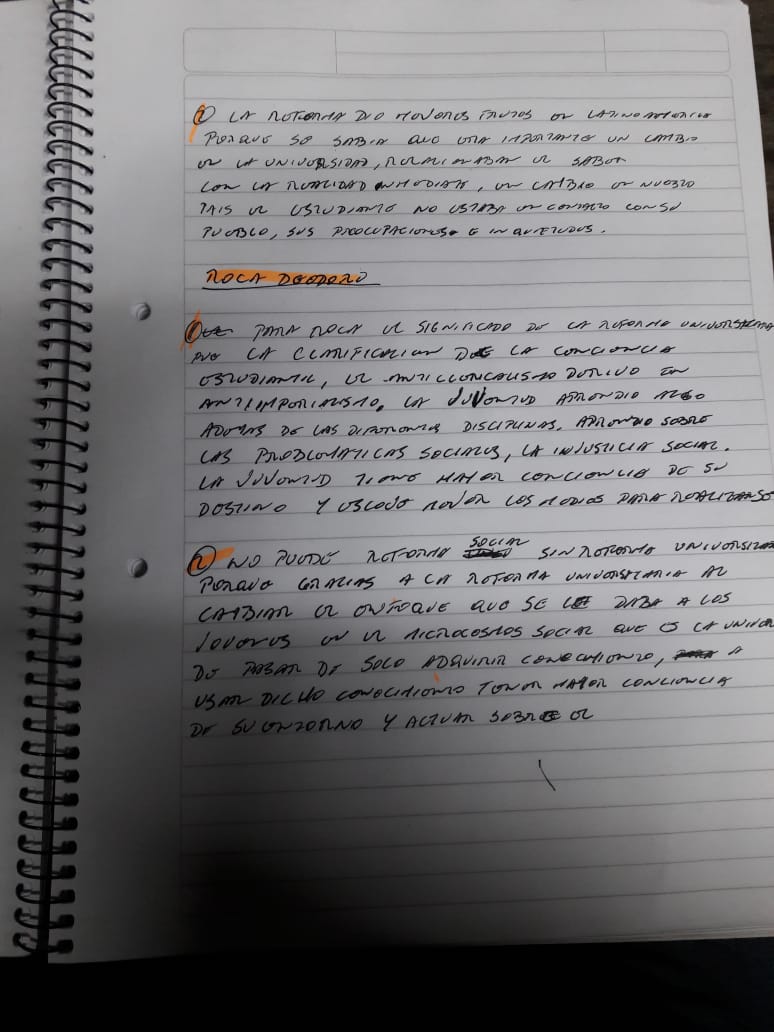 ② LA REFORMA DIO MEJORES FRUTOS EN LATINOAMERICA
PORQUE SE SABIA QUE ERA IMPORTANTE UN CAMBIO
EN LA UNIVERSIDAD, RELACIONABAN EL SABER
CON LA REALIDAD INMEDIATA, EN CAMBIO EN NUESTRO
PAIS EL ESTUDIANTE NO ESTABA EN CONTACTO CON SU
PUEBLO, SUS PREOCUPACIONES E INQUIETUDES.
ROCA DEODORO
① PARA ROCA EL SIGNIFICADO DE LA REFORMA UNIVERSITARIA
FUE LA CLARIFICACION DE LA CONCIENCIA
ESTUDIANTIL, EL ANTICLERICALISMO DERIVO EN
ANTIIMPERIALISMO. LA JUVENTUD APRENDIO ALGO
ADEMAS DE LAS DIFERENTES DISCIPLINAS. APRENDIO SOBRE
LAS PROBLEMATICAS SOCIALES, LA INJUSTICIA SOCIAL.
LA JUVENTUD TIENE MAYOR CONCIENCIA DE SU
DESTINO Y ESCOJE MEJOR LOS MEDIOS PARA REALIZARSE
② NO PUEDE REFORMA SOCIAL SIN REFORMA UNIVERSITARIA
PORQUE GRACIAS A LA REFORMA UNIVERSITARIA AL
CAMBIAR EL ENFOQUE QUE SE LE DABA A LOS
JOVENES EN EL MICROCOSMOS SOCIAL QUE ES LA
DE PASAR DE SOLO ADQUIRIR CONOCIMIENTO, A
USAR DICHO CONOCIMIENTO TENER MAYOR CONCIENCIA
DE SU ENTORNO Y ACTUAR SOBRE EL